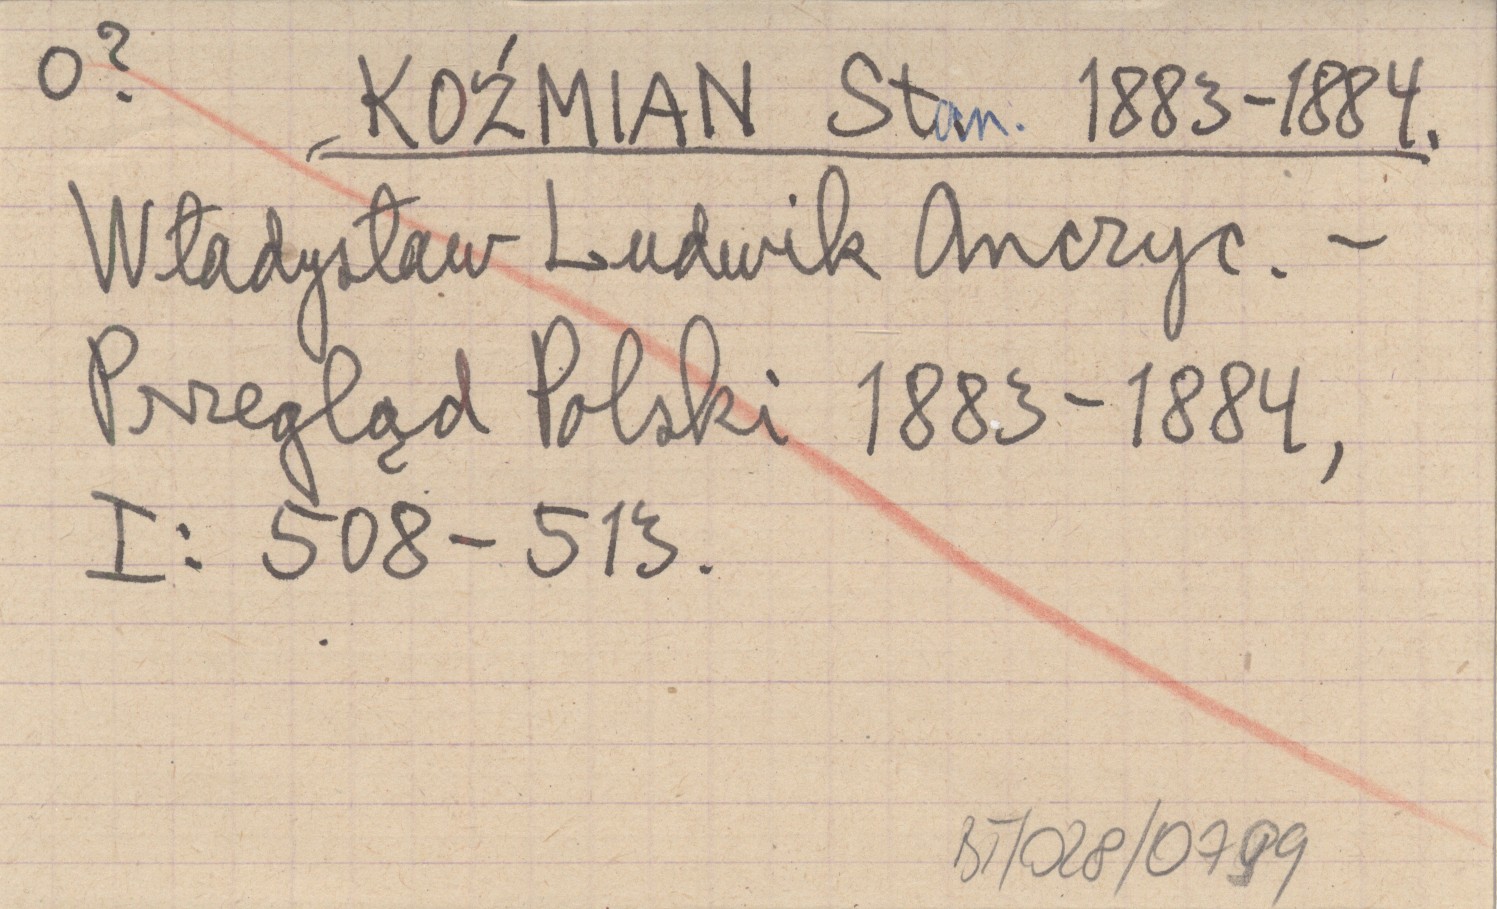 o?
KOŹMIAN Stan. 1883-1884.
Władysław Ludwik Anczyc. -
Przegląd Polski 1883-1884,
I: 508-513.
BT/028/0799